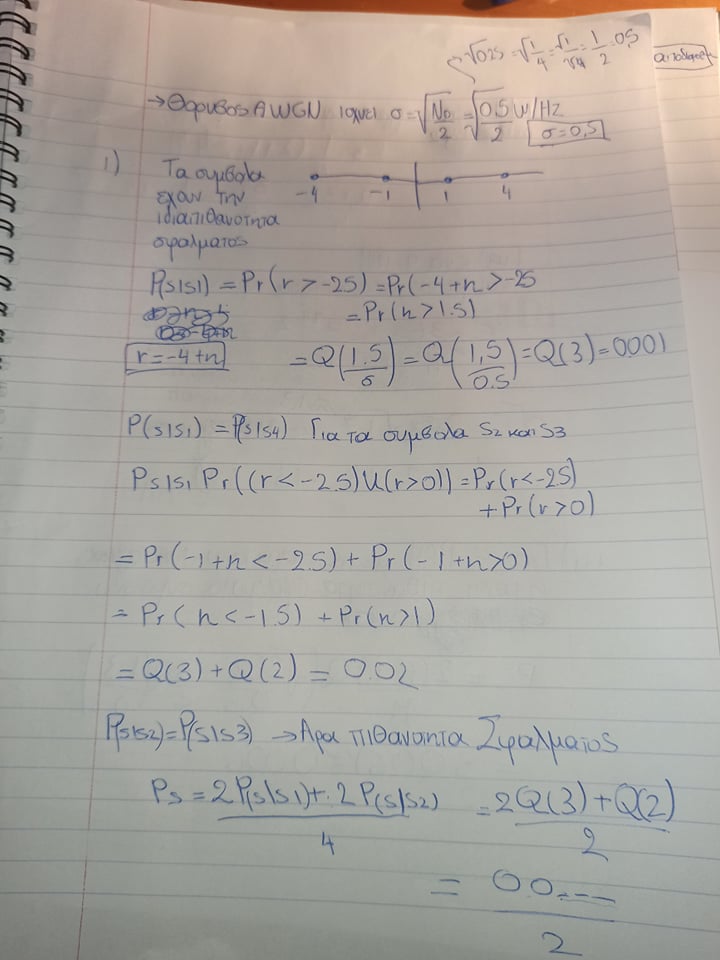 √0.25 = √1/4 = √1/√4 = 1/2 = 0.5
→ Θορυβος AWGN ισχυει σ = √(N₀/2) = √(0.5/2) W/Hz
σ = 0,5
1) Τα συμβολα
εχουν την
ιδια πιθανοτητα
σφαλματος
-4 -1 1 4
P(s|s1) = Pr(r > -2.5) = Pr(-4+n > -2.5
= Pr(n > 1.5)
r = -4+n
= Q(1.5/σ) = Q(1,5/0.5) = Q(3) = 0.001
P(s|s1) = P(s|s4) Για τα συμβολα S2 και S3
Ps|s1 Pr((r < -2.5) U (r > 0)) = Pr(r < -2.5)
+ Pr(r > 0)
= Pr(-1+n < -2.5) + Pr(-1+n > 0)
= Pr(n < -1.5) + Pr(n > 1)
= Q(3) + Q(2) = 0.02
P(s|s2) = P(s|s3) → Αρα πιθανοτητα Σφαλματος
Ps = 2P(s|s1) + 2P(s|s2) / 4 = 2Q(3) + Q(2) / 2
= 00.--- / 2